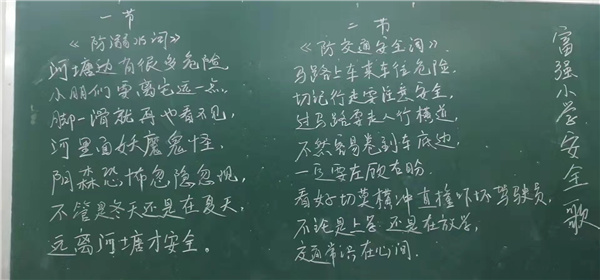 富强小学安全歌
一节
《防溺水词》
河塘边有很多危险,
小朋们要离它远一点,
脚一滑就再也看不见,
河里面妖魔鬼怪.
阴森恐怖忽隐忽现,
不管是冬天还是在夏天,
远离河塘才安全。
二节
《防交通安全词》.
马路上车来车往危险,
切记行走要注意安全,
过马路要走人行横道,
不然容易卷到车底边,
一定要左顾右盼.
看好切莫横冲直撞吓坏驾驶员,
不论是上学还是在放学,
交通常识在心间.